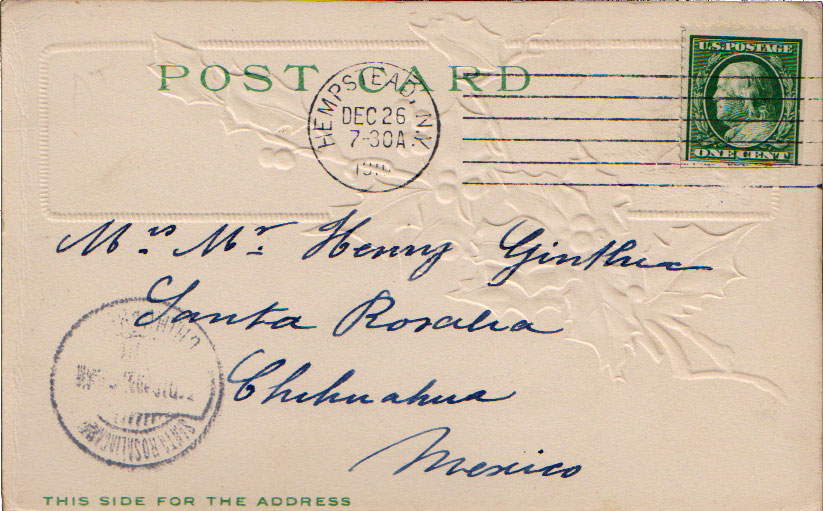 POST CARD
HEMPSTEAD, N.Y.
DEC 26
7-30A
1910
U.S. POSTAGE
ONE CENT
Mrs Mr Henry Ginther
Santa Rosalia
Chihuahua
Mexico
THIS SIDE FOR THE ADDRESS